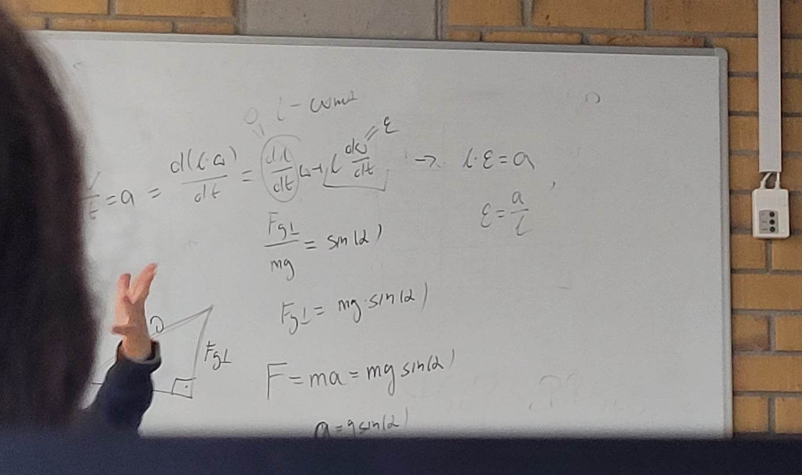 0 l - const
= a = d(l·ω)/dt = dl/dt ω + l dω/dt = ε → l·ε = a
Fg⊥/mg = sin(α)
ε = a/l
Fg⊥ = mg·sin(α)
Fg⊥
F = ma = mg sin(α)
a = g sin(α)